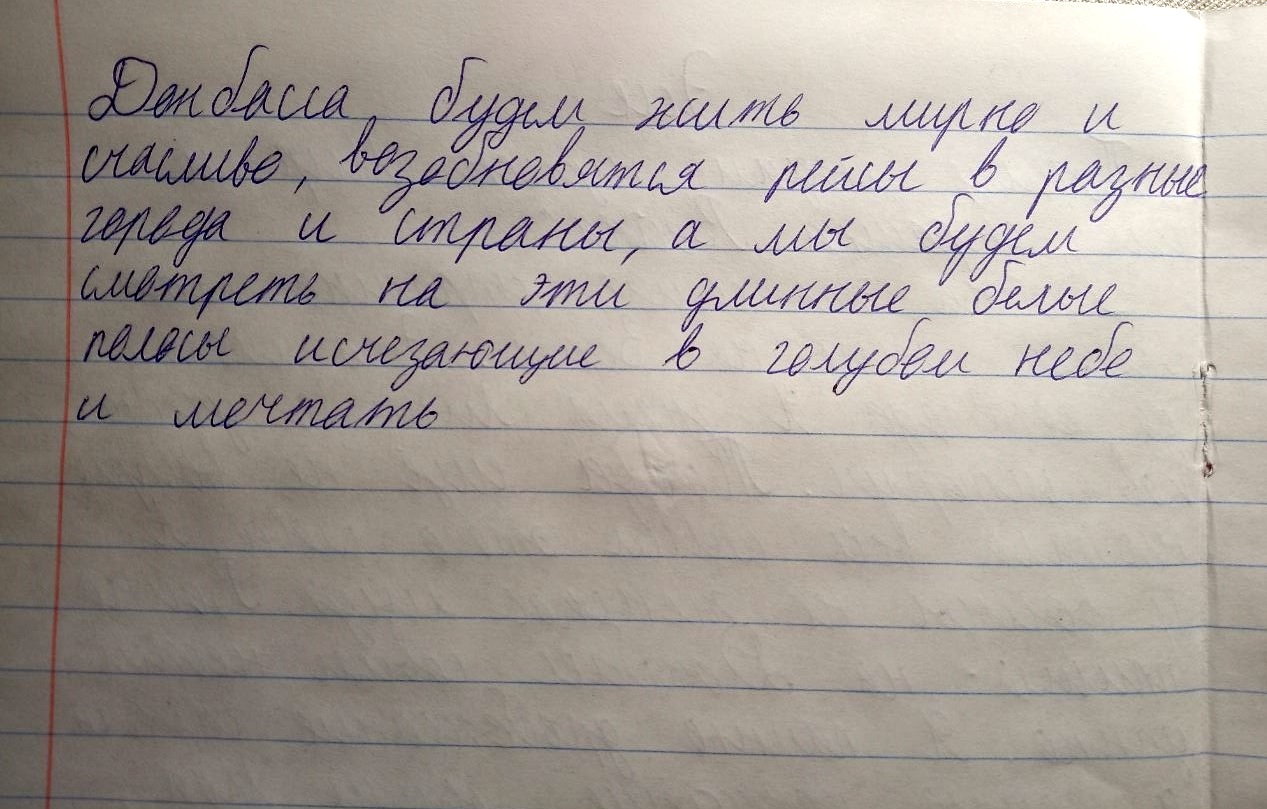 Донбасса, будем жить мирно и
счасливо, возобновятся рейсы в разные
города и страны, а мы будем
смотреть на эти длинные белые
полосы исчезающие в голубом небе
и мечтать